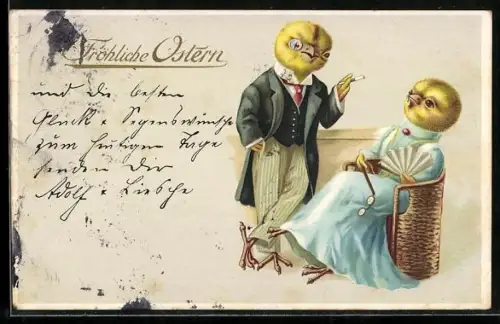 Fröhliche Ostern
und die besten
Glück & Segenswünsche
zum heutigen Tage
senden Dir
Adolf & Liesche